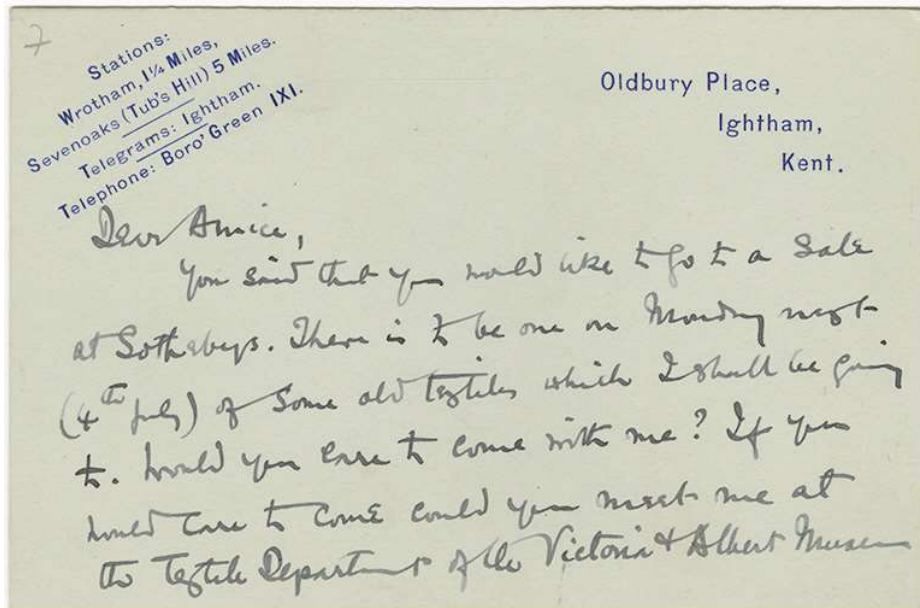 7
Stations:
Wrotham, 1¼ Miles,
Sevenoaks (Tub's Hill) 5 Miles.
Telegrams: Ightham.
Telephone: Boro' Green 1X1.
Oldbury Place,
Ightham,
Kent.
Dear Amice,
You said that you would like to go to a Sale
at Sothebys. There is to be one on Monday next
(4th July) of some old textiles which I shall be going
to. Would you care to come with me? If you
would care to come could you meet me at
the Textile Department of the Victoria & Albert Museum